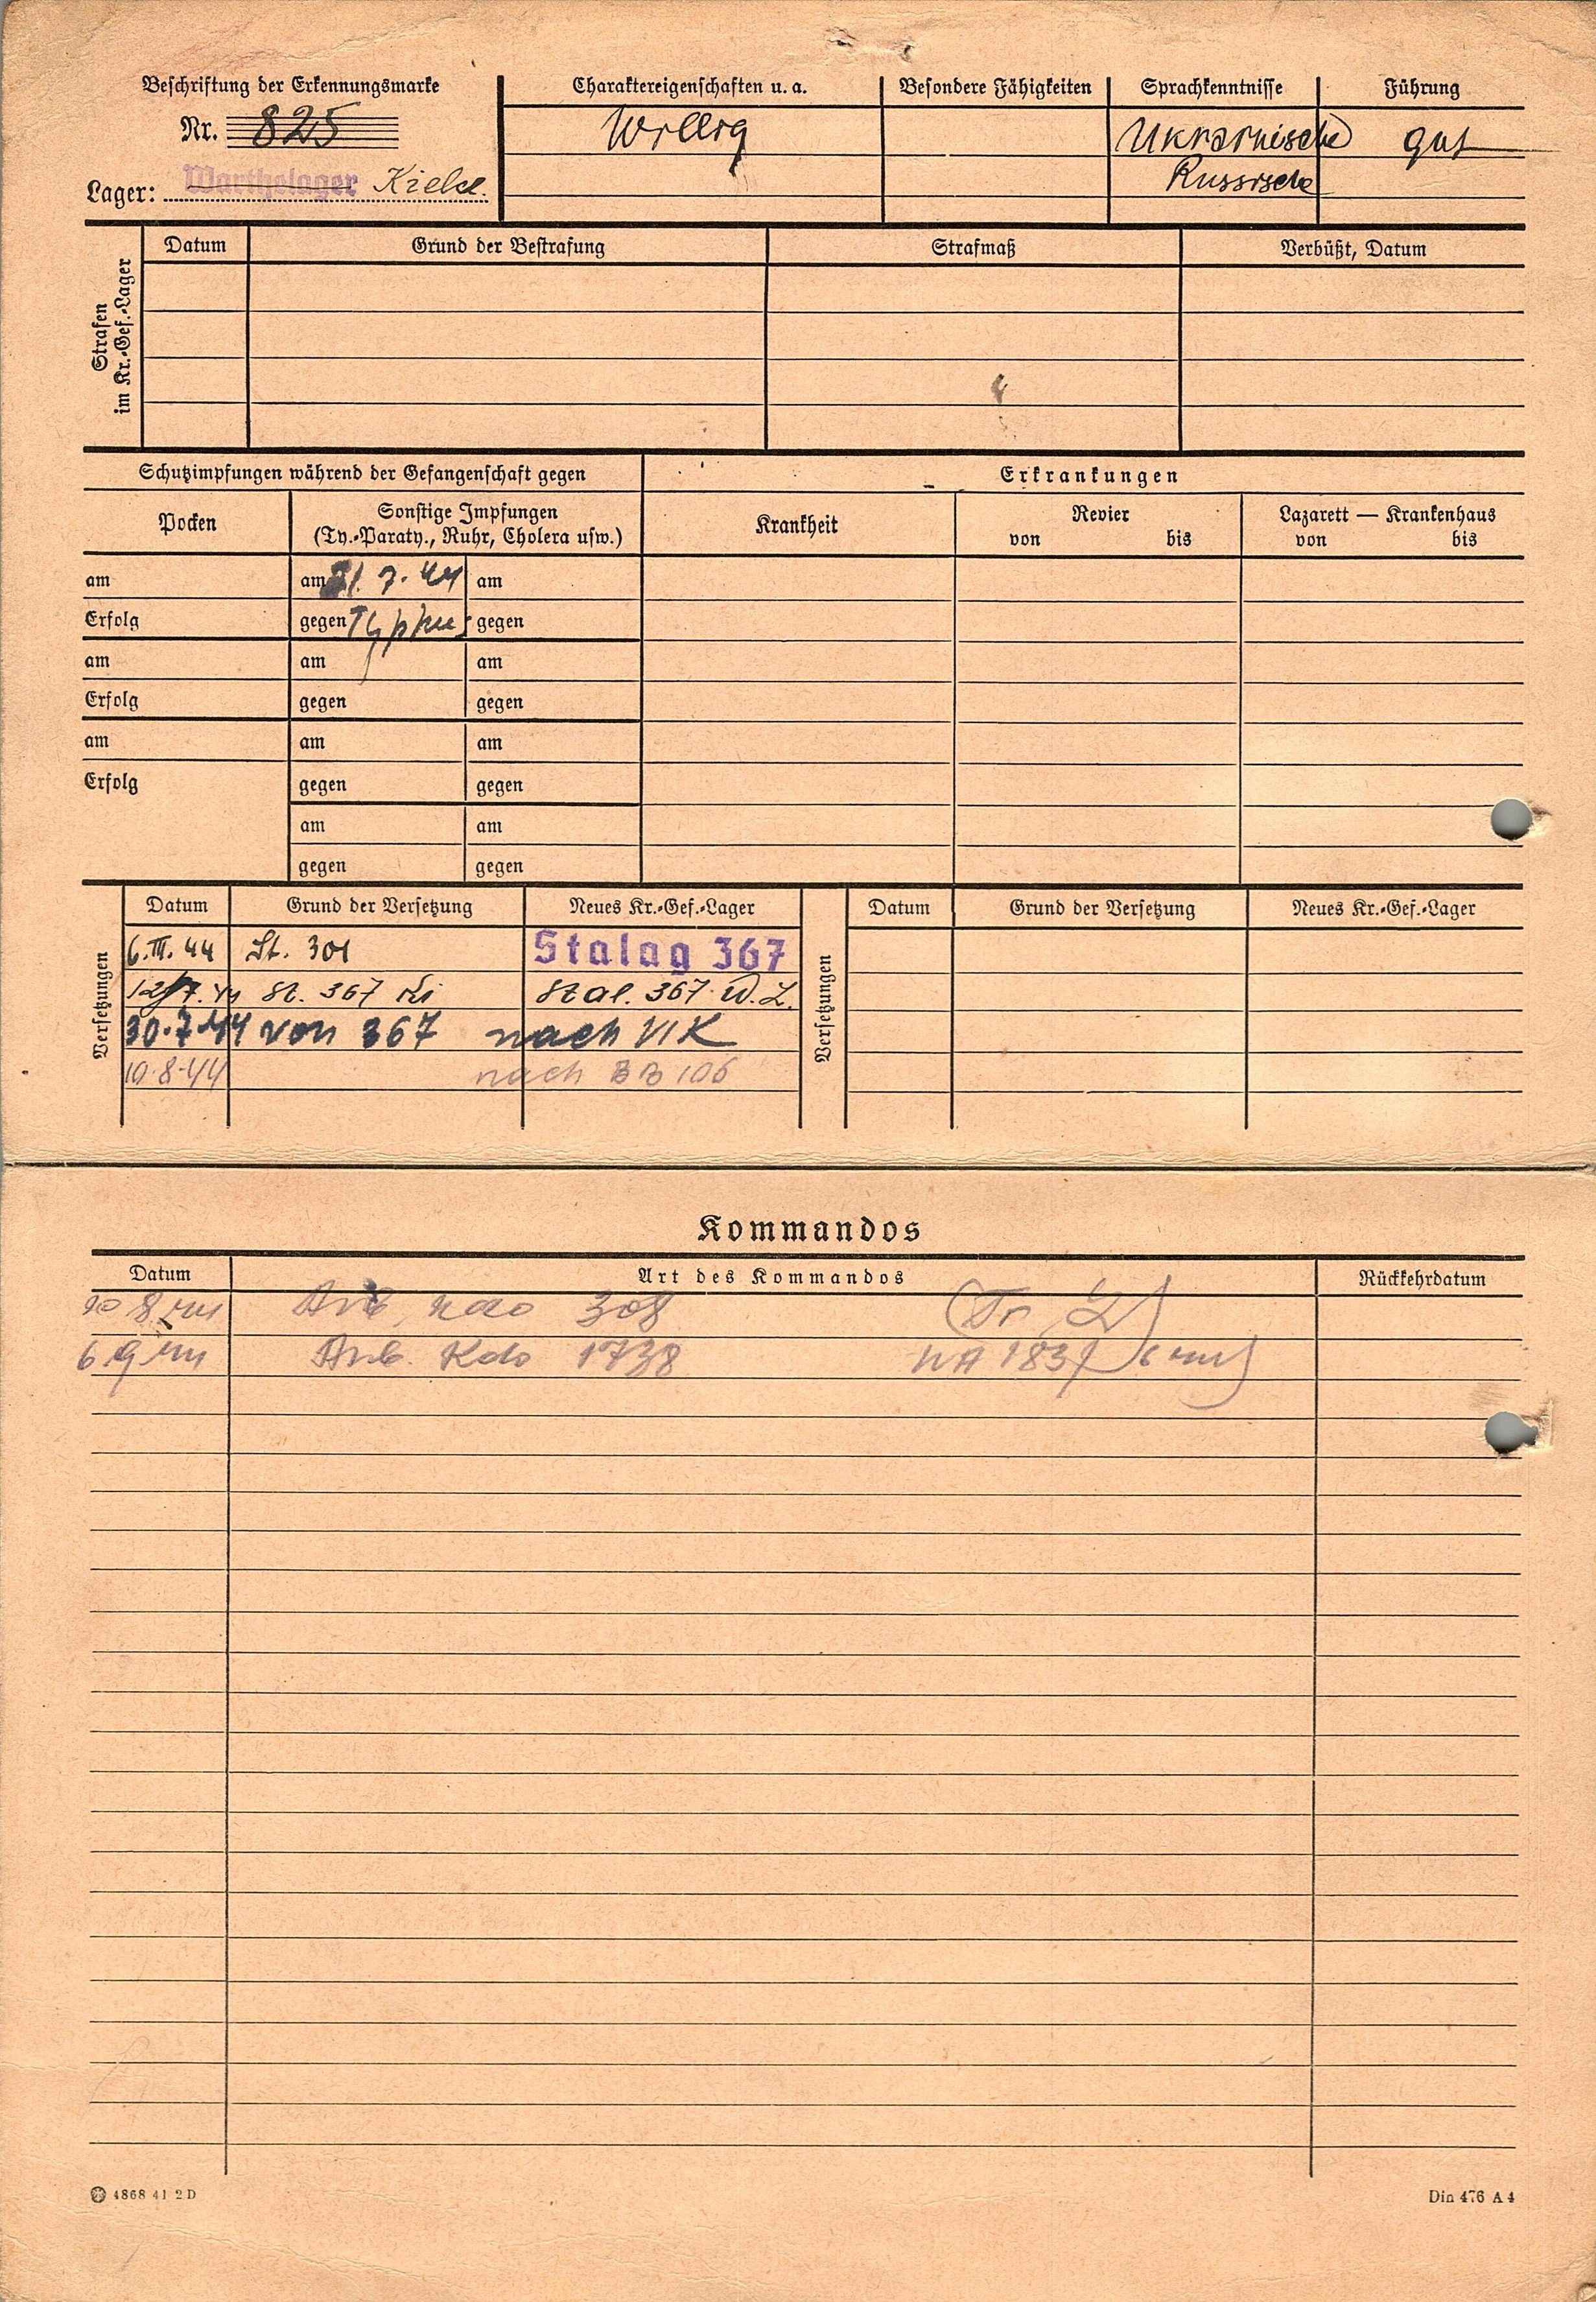 Beschriftung der Erkennungsmarke
Nr. 825
Lager: Warthelager Kielce.
Charaktereigenschaften u. a.
Willig
Besondere Fähigkeiten
Sprachkenntnisse
Ukrainische
Russische
Führung
gut
Strafen
im Kr.-Gef.-Lager
Datum
Grund der Bestrafung
Strafmaß
Verbüßt, Datum
Schutzimpfungen während der Gefangenschaft gegen
Erkrankungen
Pocken
Sonstige Impfungen
(Ty.-Paraty., Ruhr, Cholera usw.)
Krankheit
Revier
von bis
Lazarett — Krankenhaus
von bis
am am 21. 7. 44 am
Erfolg gegen Typhus gegen
am am am
Erfolg gegen gegen
am am am
Erfolg gegen gegen
am am
gegen gegen
Versetzungen
Datum Grund der Versetzung Neues Kr.-Gef.-Lager
6. III. 44 St. 301 Stalag 367
12/7. 44 St. 367 Ki Stal. 367 W. L.
30. 7. 44 von 367 nach VI K
10. 8. 44 nach BB 106
Versetzungen
Datum Grund der Versetzung Neues Kr.-Gef.-Lager
Kommandos
Datum Art des Kommandos Rückkehrdatum
8 44 Arb. Kdo 308
6 9 44 Arb. Kdo 1738
4868 41 2D
Din 476 A 4